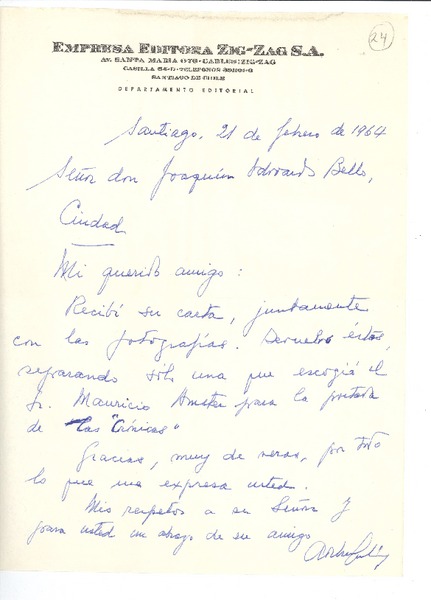 24
EMPRESA EDITORA ZIG-ZAG S.A.
AV. SANTA MARIA 076 - CABLES: ZIG-ZAG
SANTIAGO DE CHILE
DEPARTAMENTO EDITORIAL
Santiago, 21 de febrero de 1964
Señor don Joaquín Edwards Bello,
Ciudad
Mi querido amigo:
Recibí su carta, juntamente
con las fotografías. Devuelvo éstas,
separando sólo una que escogió el
Sr. Mauricio Amster para la portada
de las "Crónicas"
Gracias, muy de veras, por todo
lo que me expresa usted.
Mis respetos a su Señora y
para usted un abrazo de su amigo